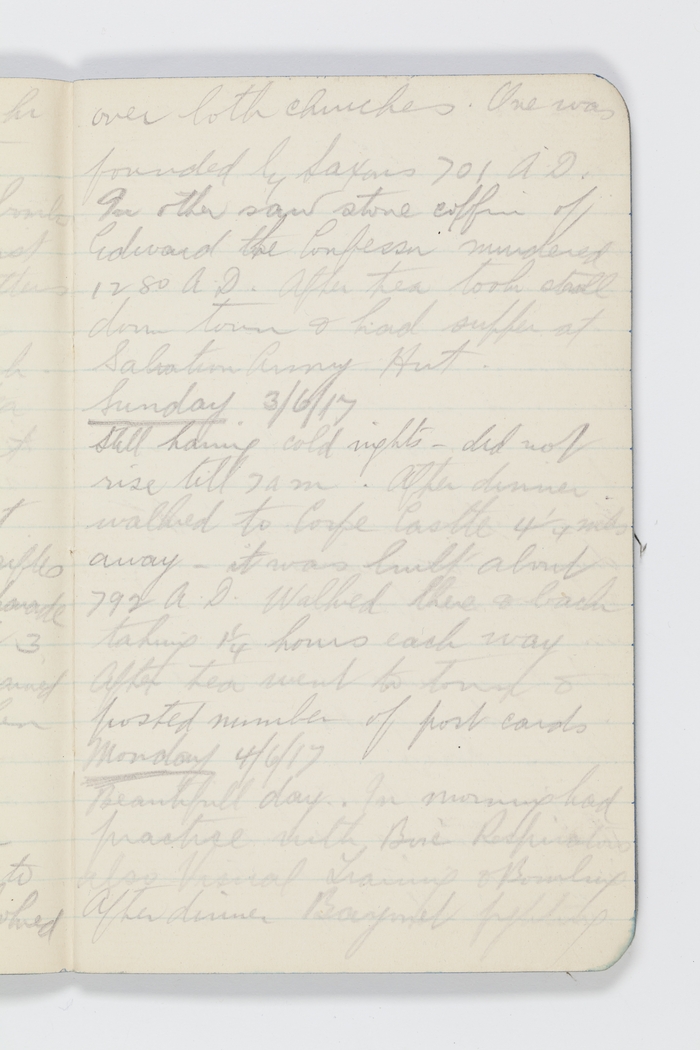 over both churches. One was
founded by Saxons 701 A D.
In other saw stone coffin of
Edward the Confessor murdered
1280 A D. After tea took stroll
down town & had supper at
Salvation Army Hut.
Sunday 3/6/17
Still having cold nights - did not
rise till 7 a m. After dinner
walked to Corfe Castle 4 1/4 miles
away - it was built about
792 A D. Walked there & back
taking 1 1/4 hours each way
After tea went to town &
posted number of post cards
Monday 4/6/17
Beautifull day. In morning had
practice with Box Respirators
also Visual Training & Bombing
After dinner Bayonet fighting